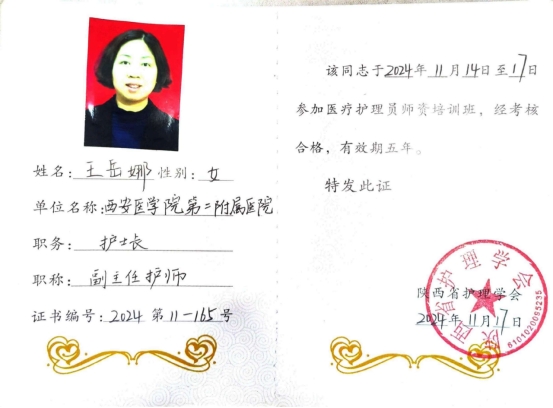 姓名：王岳娜 性别：女
单位名称：西安医学院第二附属医院
职务：护士长
职称：副主任护师
证书编号：2024 第 11-165 号
该同志于2024年 11 月 14日至17日
参加医疗护理员师资培训班，经考核
合格，有效期五年。
特发此证
陕西省护理学会
2024年 11月17日
陕西省护理学会
6101020065235